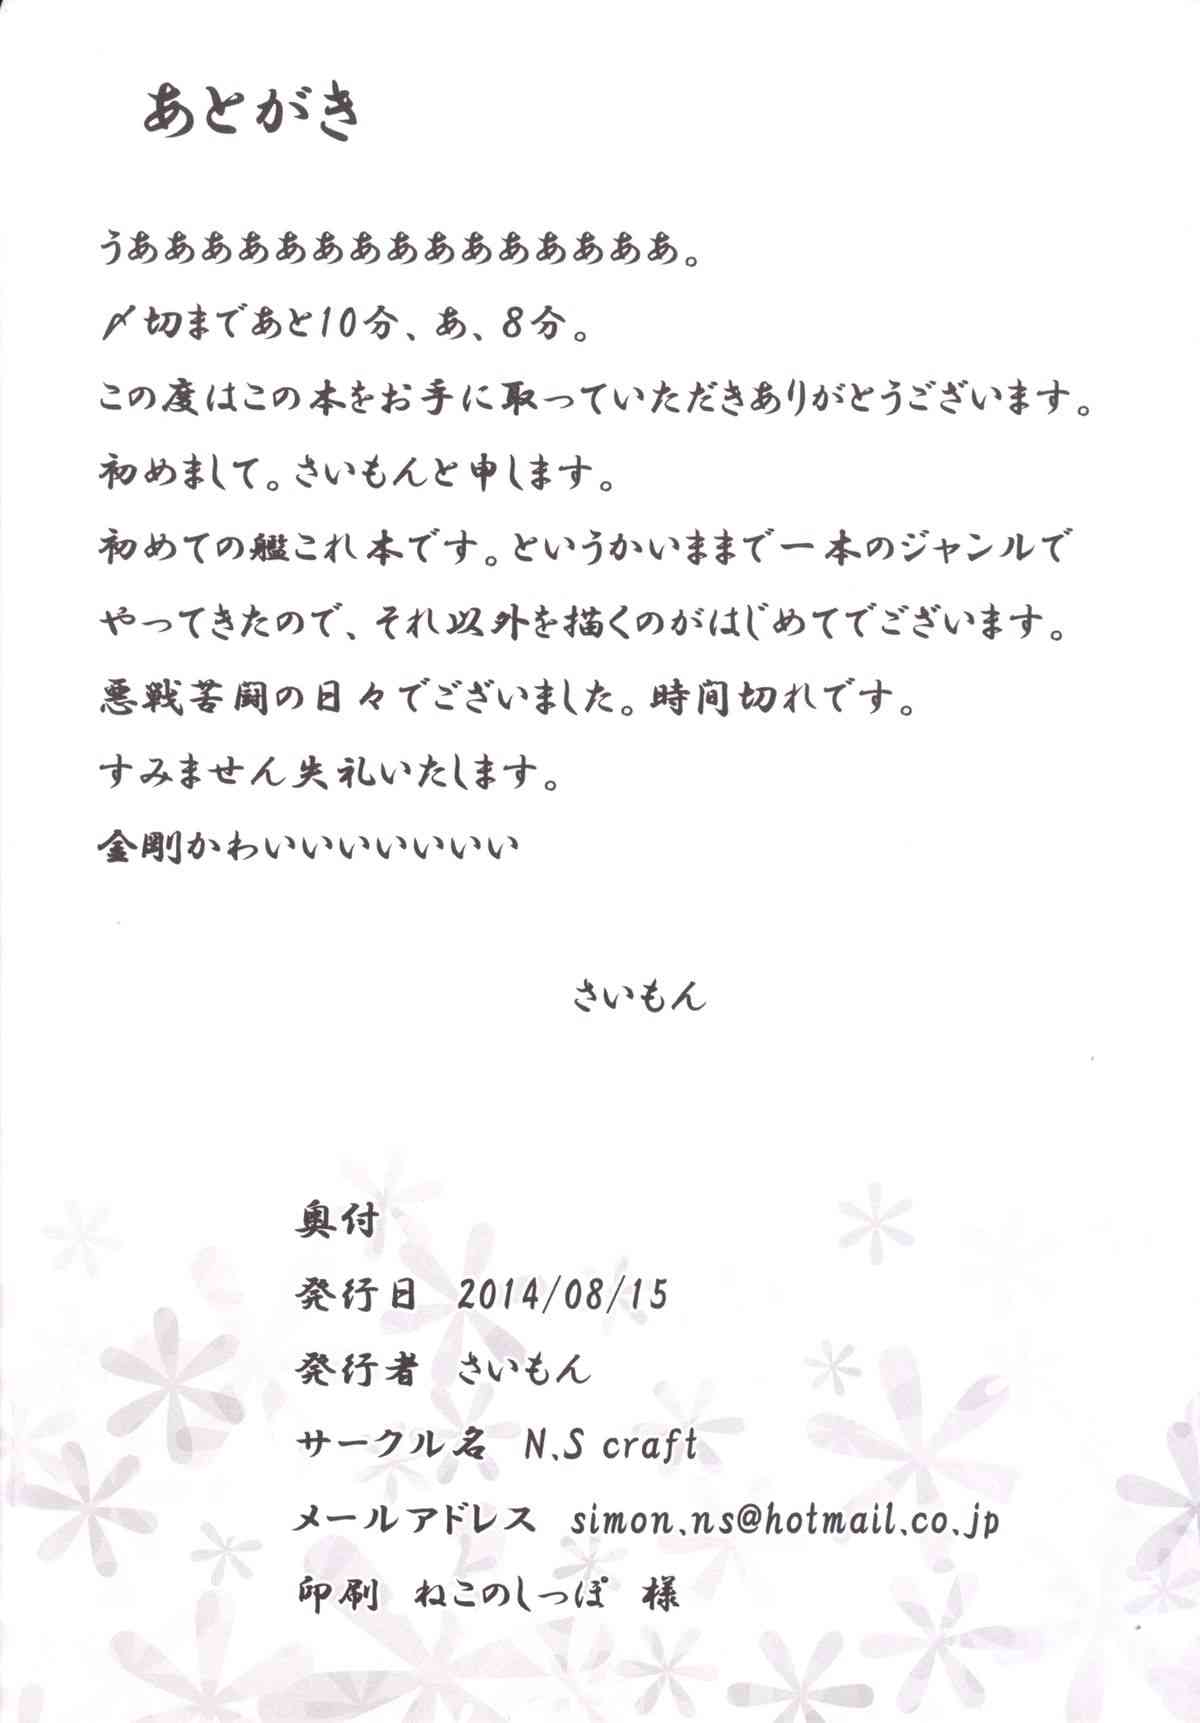 あとがき
うあああああああああああああああ。
〆切まであと10分、あ、8分。
この度はこの本をお手に取っていただきありがとうございます。
初めまして。さいもんと申します。
初めての艦これ本です。というかいままで一本のジャンルで
やってきたので、それ以外を描くのがはじめてでございます。
悪戦苦闘の日々でございました。時間切れです。
すみません失礼いたします。
金剛かわいいいいいいい
さいもん
奥付
発行日　2014/08/15
発行者　さいもん
サークル名　N.S craft
メールアドレス　simon.ns@hotmail.co.jp
印刷　ねこのしっぽ　様